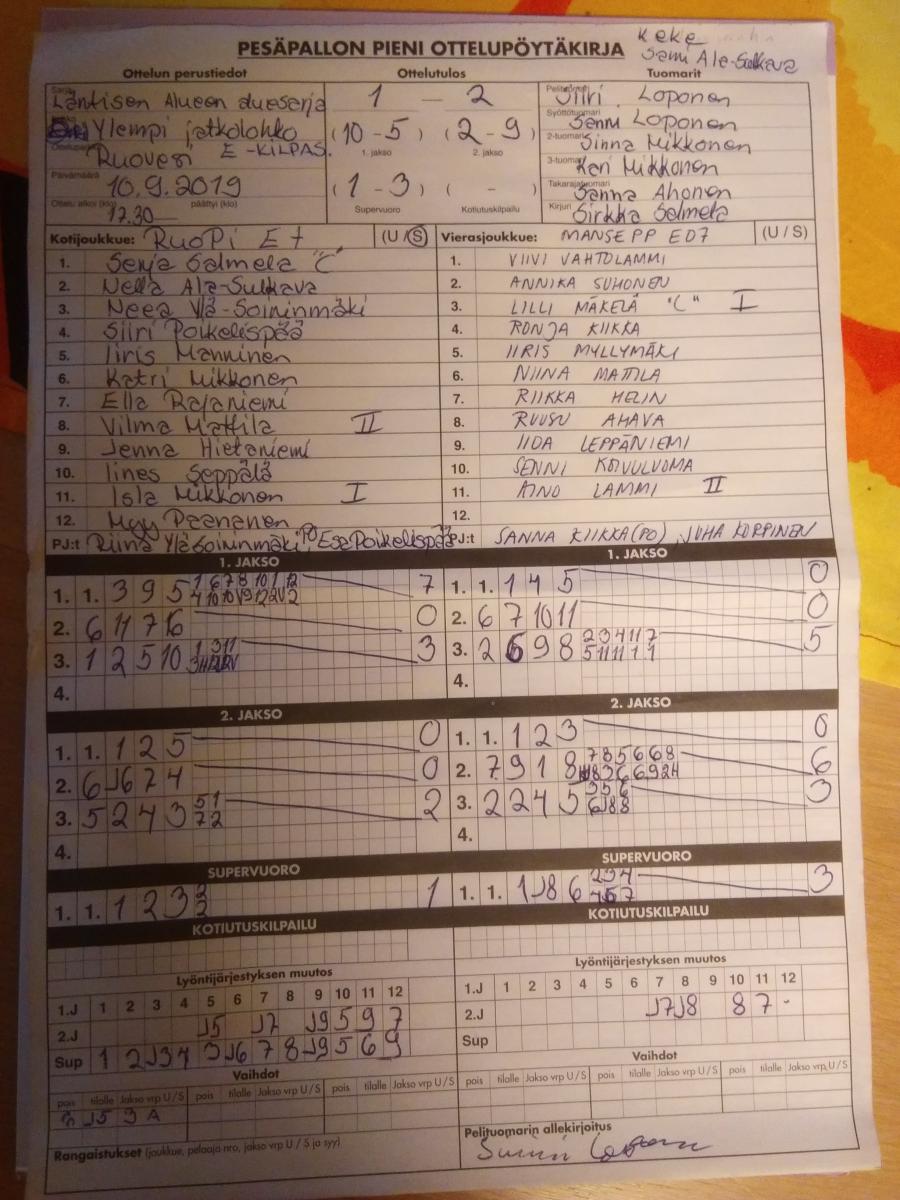 Keke
Sami Ala-Sulkava
PESÄPALLON PIENI OTTELUPÖYTÄKIRJA
Ottelun perustiedot Ottelutulos Tuomarit
Sarja Läntisen Alueen aluesarja 1 – 2 Pelituomari Siiri Loponen
Ylempi jatkolohko (10 - 5) (2 - 9) Syöttötuomari Sanni Loponen
Ruovesi E-KILPAS. 1. jakso 2. jakso 2-tuomari Sinna Mikkonen
Päivämäärä 10.9.2019 (1 - 3) ( - ) 3-tuomari Keri Mikkonen
Takarajatuomari Sanna Ahonen
Ottelu alkoi (klo) 17.30 päättyi (klo) Supervuoro Kotiutuskilpailu Kirjuri Sirkka Salmela
Kotijoukkue: RuoPi E+ (U/S) Vierasjoukkue: MANSEPP ED7 (U/S)
1. Senja Salmela "C" 1. VIIVI VAHTOLAMMI
2. Nella Ala-Sulkava 2. ANNIKA SUHONEN
3. Neea Ylä-Soininmäki 3. LILLI MÄKELÄ "C" I
4. Siiri Poikelispää 4. RONJA KIIKKA
5. Iiris Manninen 5. IIRIS MYLLYMÄKI
6. Katri Mikkonen 6. NIINA MATTILA
7. Ella Rajaniemi 7. RIIKKA HELIN
8. Vilma Mattila II 8. RUUSU AHAVA
9. Jenna Hietaniemi 9. IIDA LEPPÄNIEMI
10. Iines Seppälä 10. SENNI KOIVULUOMA
11. Isla Mikkonen I 11. AINO LAMMI II
12. Paananen 12.
PJ:t Riina Ylä-Soininmäki, PO Esa Poikelispää PJ:t SANNA KIIKKA (PO), JUHA KORPINEN
1. JAKSO 1. JAKSO
1. 1. 3 9 5 7 1. 1. 1 4 5 0
2. 6 11 7 6 0 2. 6 7 10 11 0
3. 1 2 5 10 3 3. 2 6 9 8 5
4. 4.
2. JAKSO 2. JAKSO
1. 1. 1 2 5 0 1. 1. 1 2 3 0
2. 6 J6 7 4 0 2. 7 9 1 8 6
3. 5 2 4 3 2 3. 2 2 4 5 3
4. 4.
SUPERVUORO SUPERVUORO
1. 1. 1 2 3 1 1. 1. 1 J8 6 3
KOTIUTUSKILPAILU KOTIUTUSKILPAILU
Lyöntijärjestyksen muutos Lyöntijärjestyksen muutos
1.J 1 2 3 4 5 6 7 8 9 10 11 12 1.J 1 2 3 4 5 6 7 8 9 10 11 12
2.J J5 J7 J9 5 9 7 2.J J7 J8 8 7 -
Sup 1 2 J3 4 3 J6 7 8 J9 5 6 9 Sup
Vaihdot Vaihdot
pois tilalle Jakso vrp U/S pois tilalle Jakso vrp U/S pois tilalle Jakso vrp U/S pois tilalle Jakso vrp U/S pois tilalle Jakso vrp U/S pois tilalle Jakso vrp U/S
J5 3 A
Rangaistukset (joukkue, pelaaja nro, jakso vrp U / S ja syy) Pelituomarin allekirjoitus